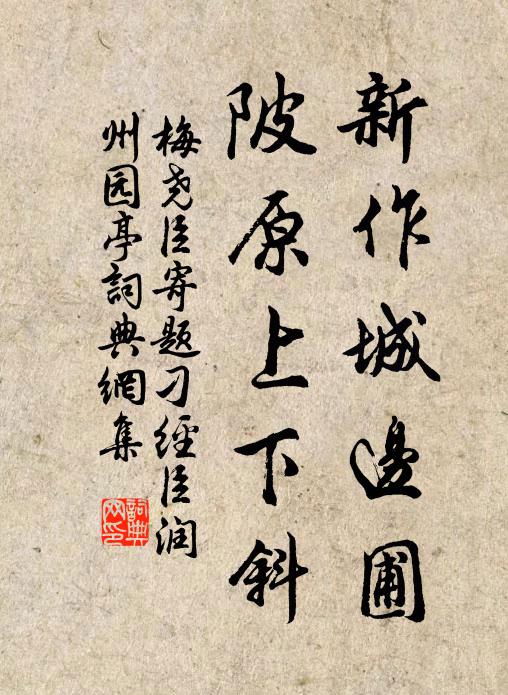 新作城邊圃
陂原上下斜
梅尧臣寄题刁經臣润
州园亭詞典網集
詞典网印